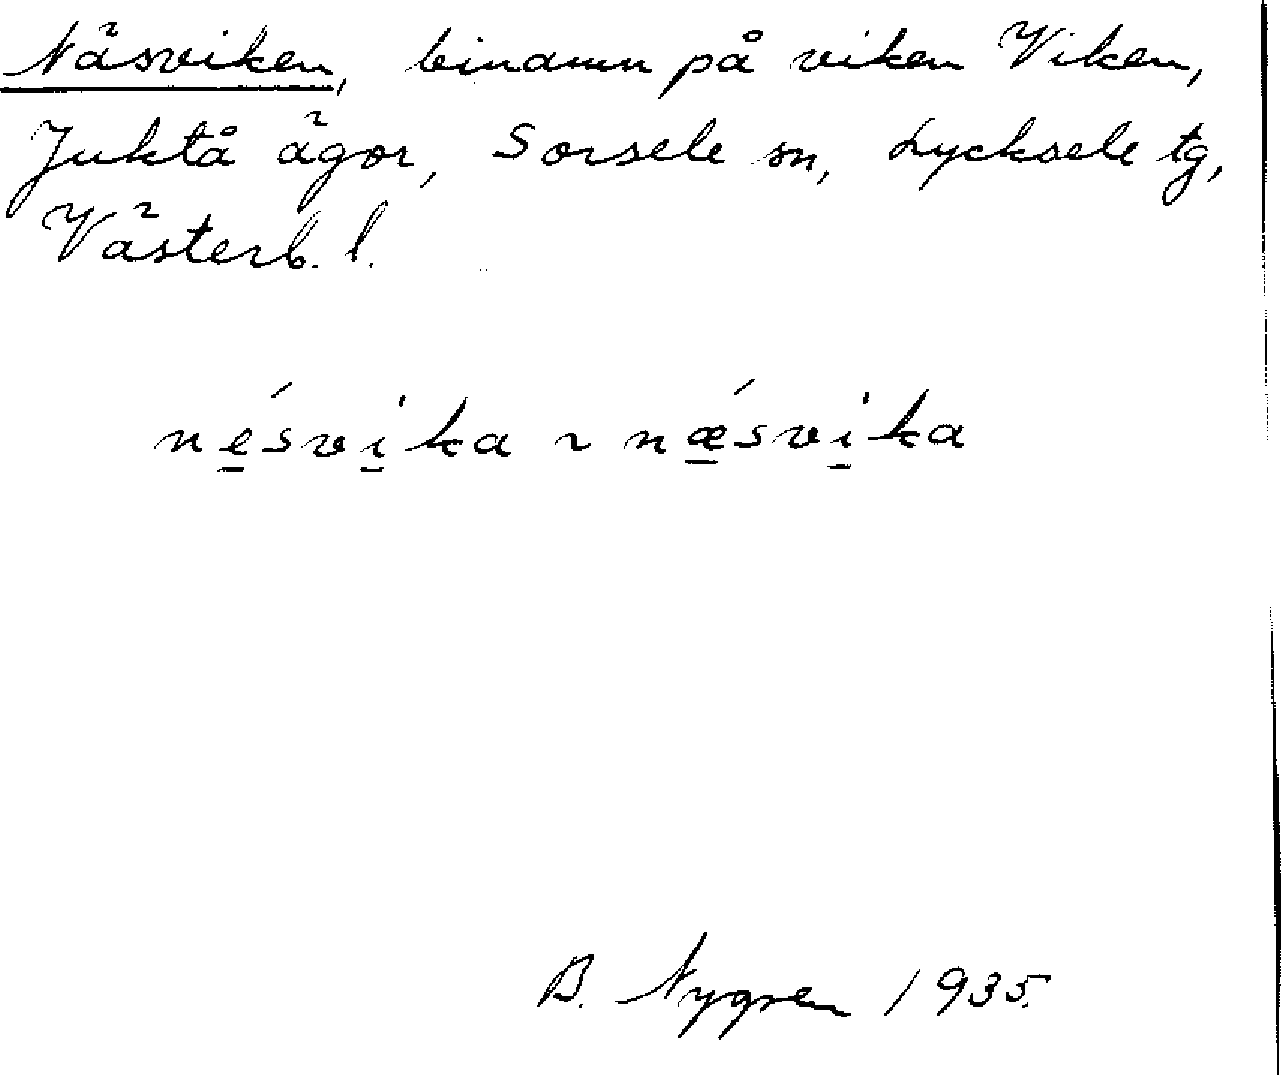 Näsviken, binamn på viken Viken,
Juktå ägor, Sorsele sn, Lycksele tg,
Västerb. l.
né̱svi̱ka ~ nǽ̱svi̱ka
B. Nygren 1935.